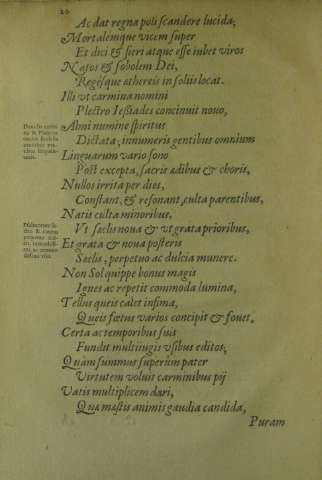 20
Ac dat regna poli scandere lucida;
Mortalemque vicem super
Et dici & fieri atque esse iubet viros
Natos & sobolem Dei,
Regesque æthereis in soliis locat.
Illi vt carmina nomini
Plectro Iessiades concinuit nouo,
Almi numine spiritus
Dictata, innumeris gentibus omnium
Linguarum vario sono
Post excepta, sacris ædibus & choris,
Nullos irrita per dies,
Constant, & resonant, culta parentibus,
Natis culta minoribus,
Vt sæclis noua & vt grata prioribus,
Et grata & noua posteris
Sæclis, perpetuo ac dulcia munere.
Non Sol quippe bonus magis
Ignes ac repetit commoda lumina,
Tellus queis calet infima,
Queis fœtus varios concipit & fouet,
Certa ac temporibus suis
Fundit multiiugis vsibus editos;
Quàm summus superûm pater
Virtutem voluit carminibus pij
Vatis multiplicem dari,
Qua mæstis animis gaudia candida,
Puram